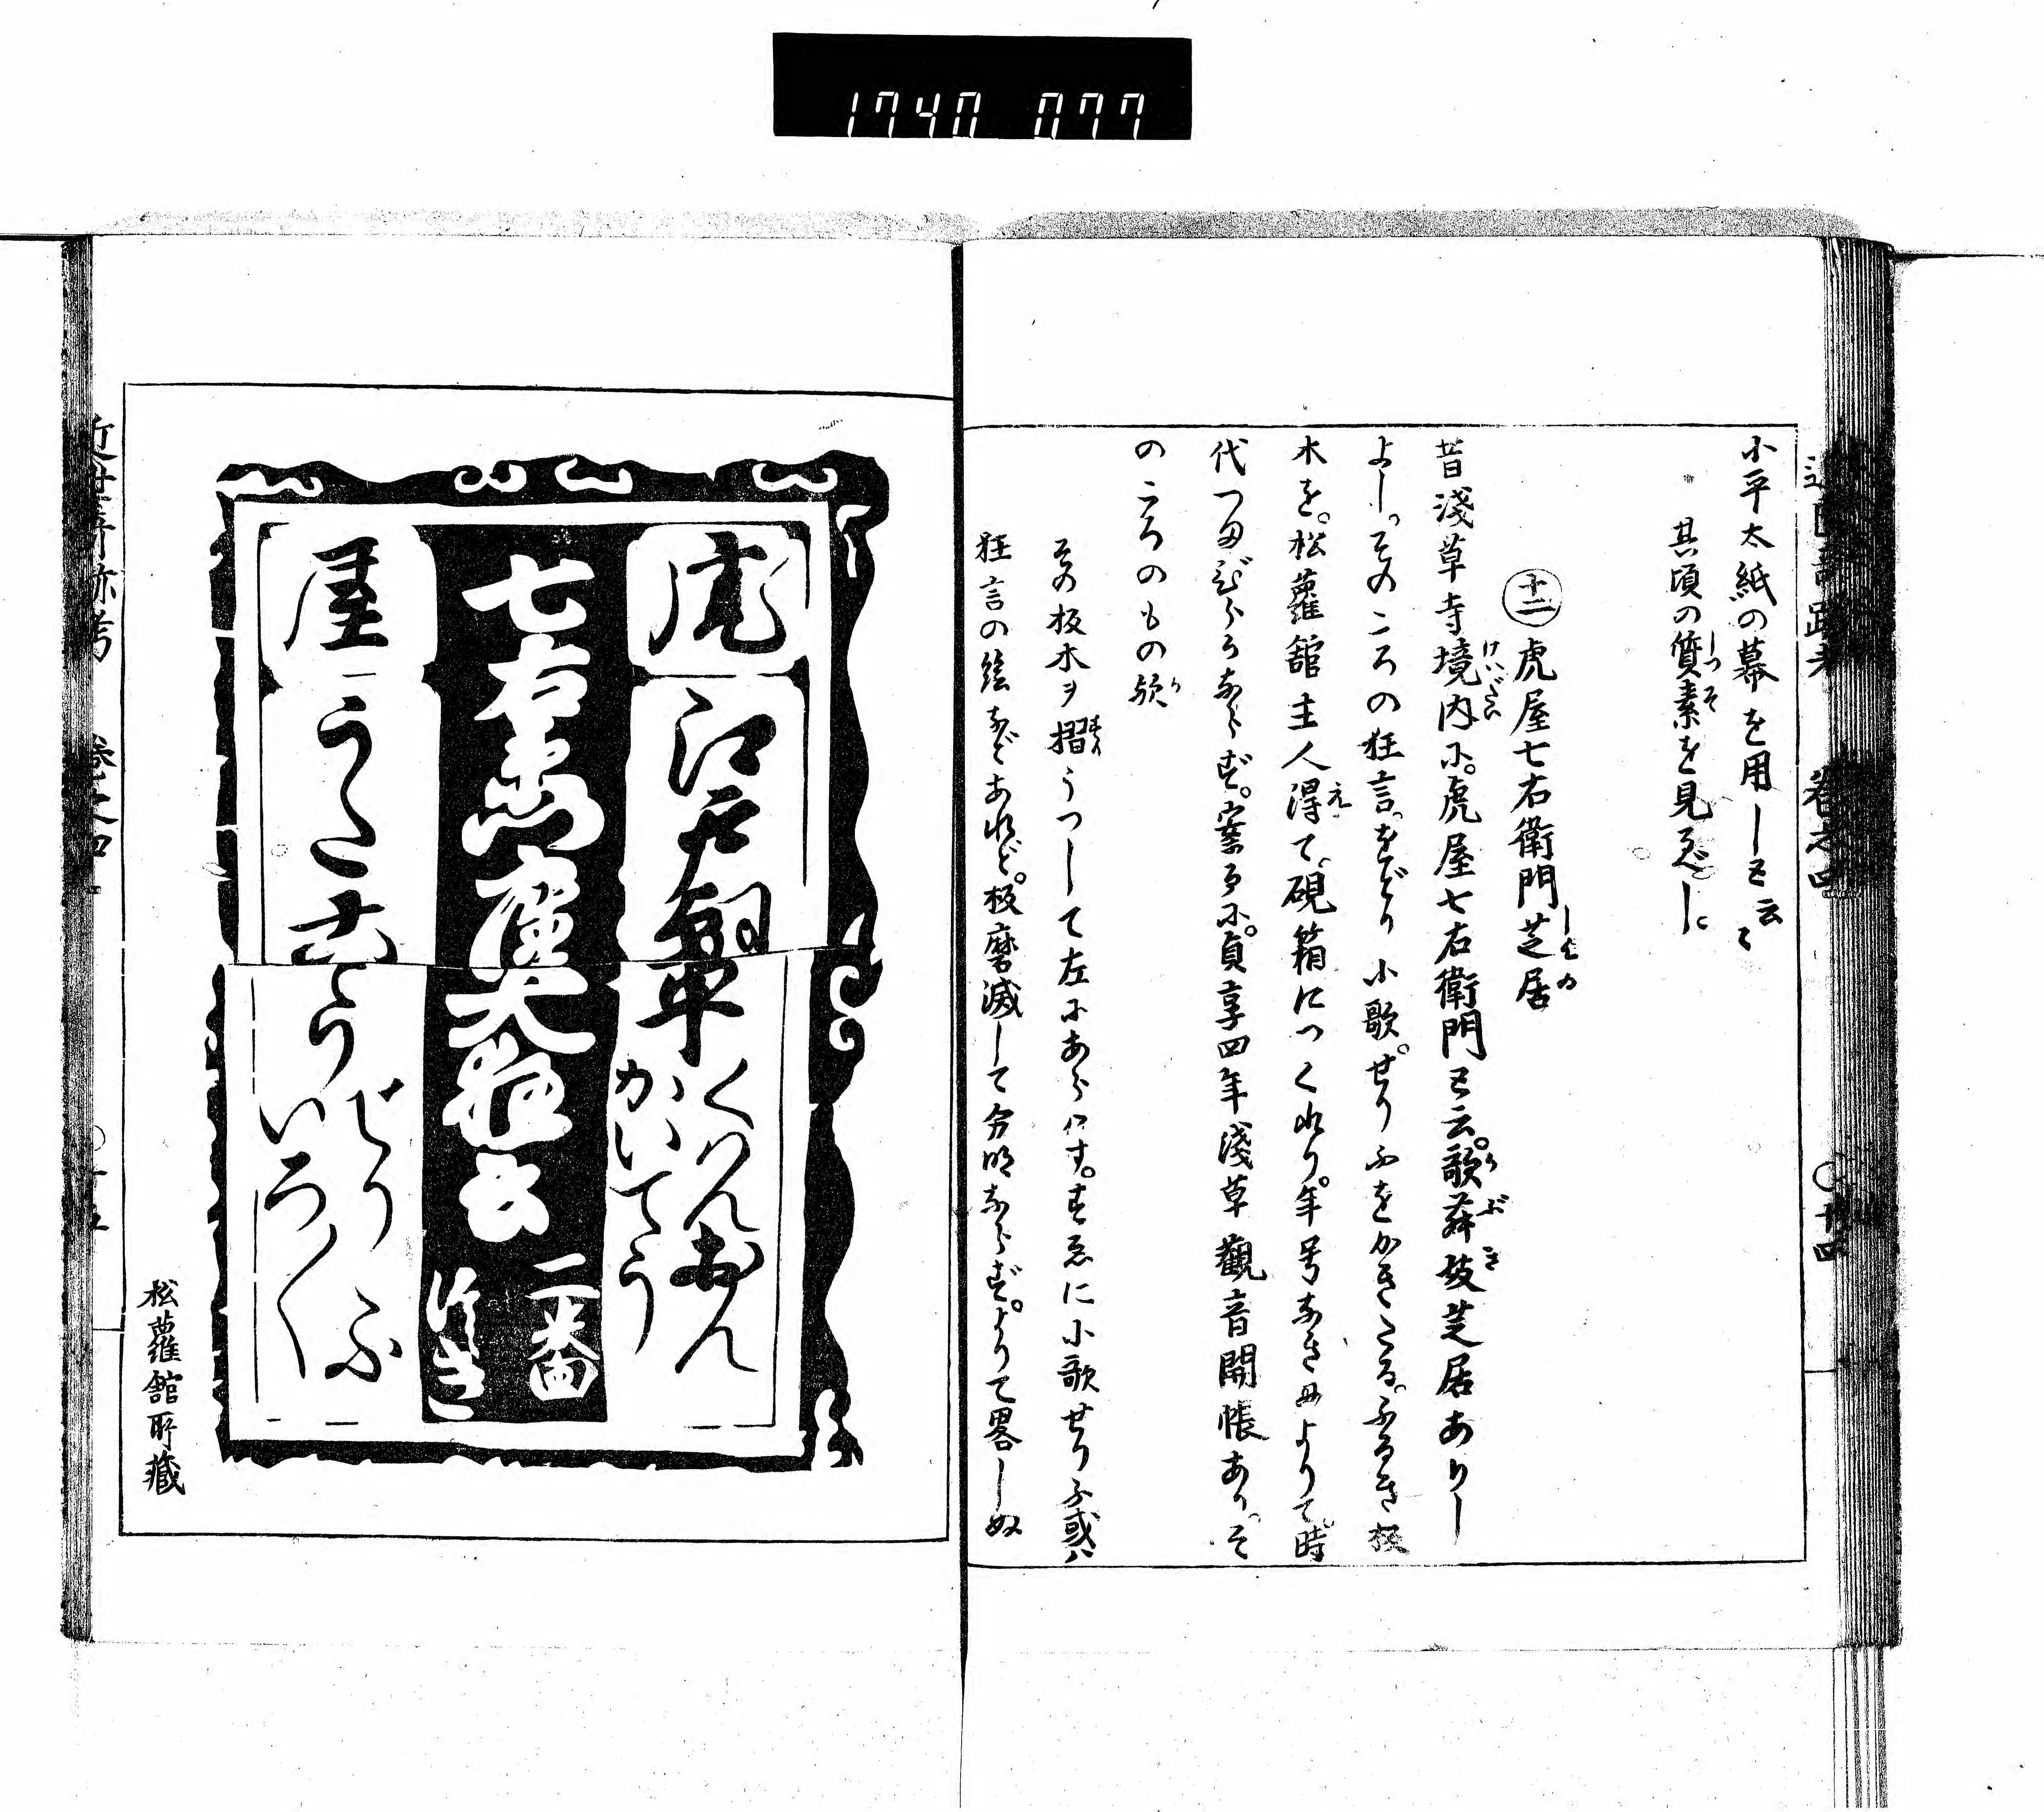 1740 077
近世奇跡考 巻之四 〇十四
小平太紙の幕を用しと云々
其頃の質素を見るべし
十二 虎屋七右衛門芝居
昔淺草寺境内に。虎屋七右衛門と云。歌舞妓芝居ありし
よし。そのころの狂言。をどり小歌。せりふをかきたる。ふるき板
木を。松蘿舘主人得て。硯箱につくれり。年号なきによりて。時
代つまびらかならず。案るに。貞享四年淺草觀音開帳あり。そ
のころのもの歟
その板木ヲ摺うつして左にあらはす。すゑに小歌せりふ或ハ
狂言の絵などあれど。板磨滅して分明ならず。よりて畧しぬ
虎
江戸朝草
くわんおん
かいてう
七右衛門座大狂言
二番
つゞき
屋
うた
せりふ
いろ〳〵
松蘿舘所藏
近世奇跡考 巻之四 〇十五